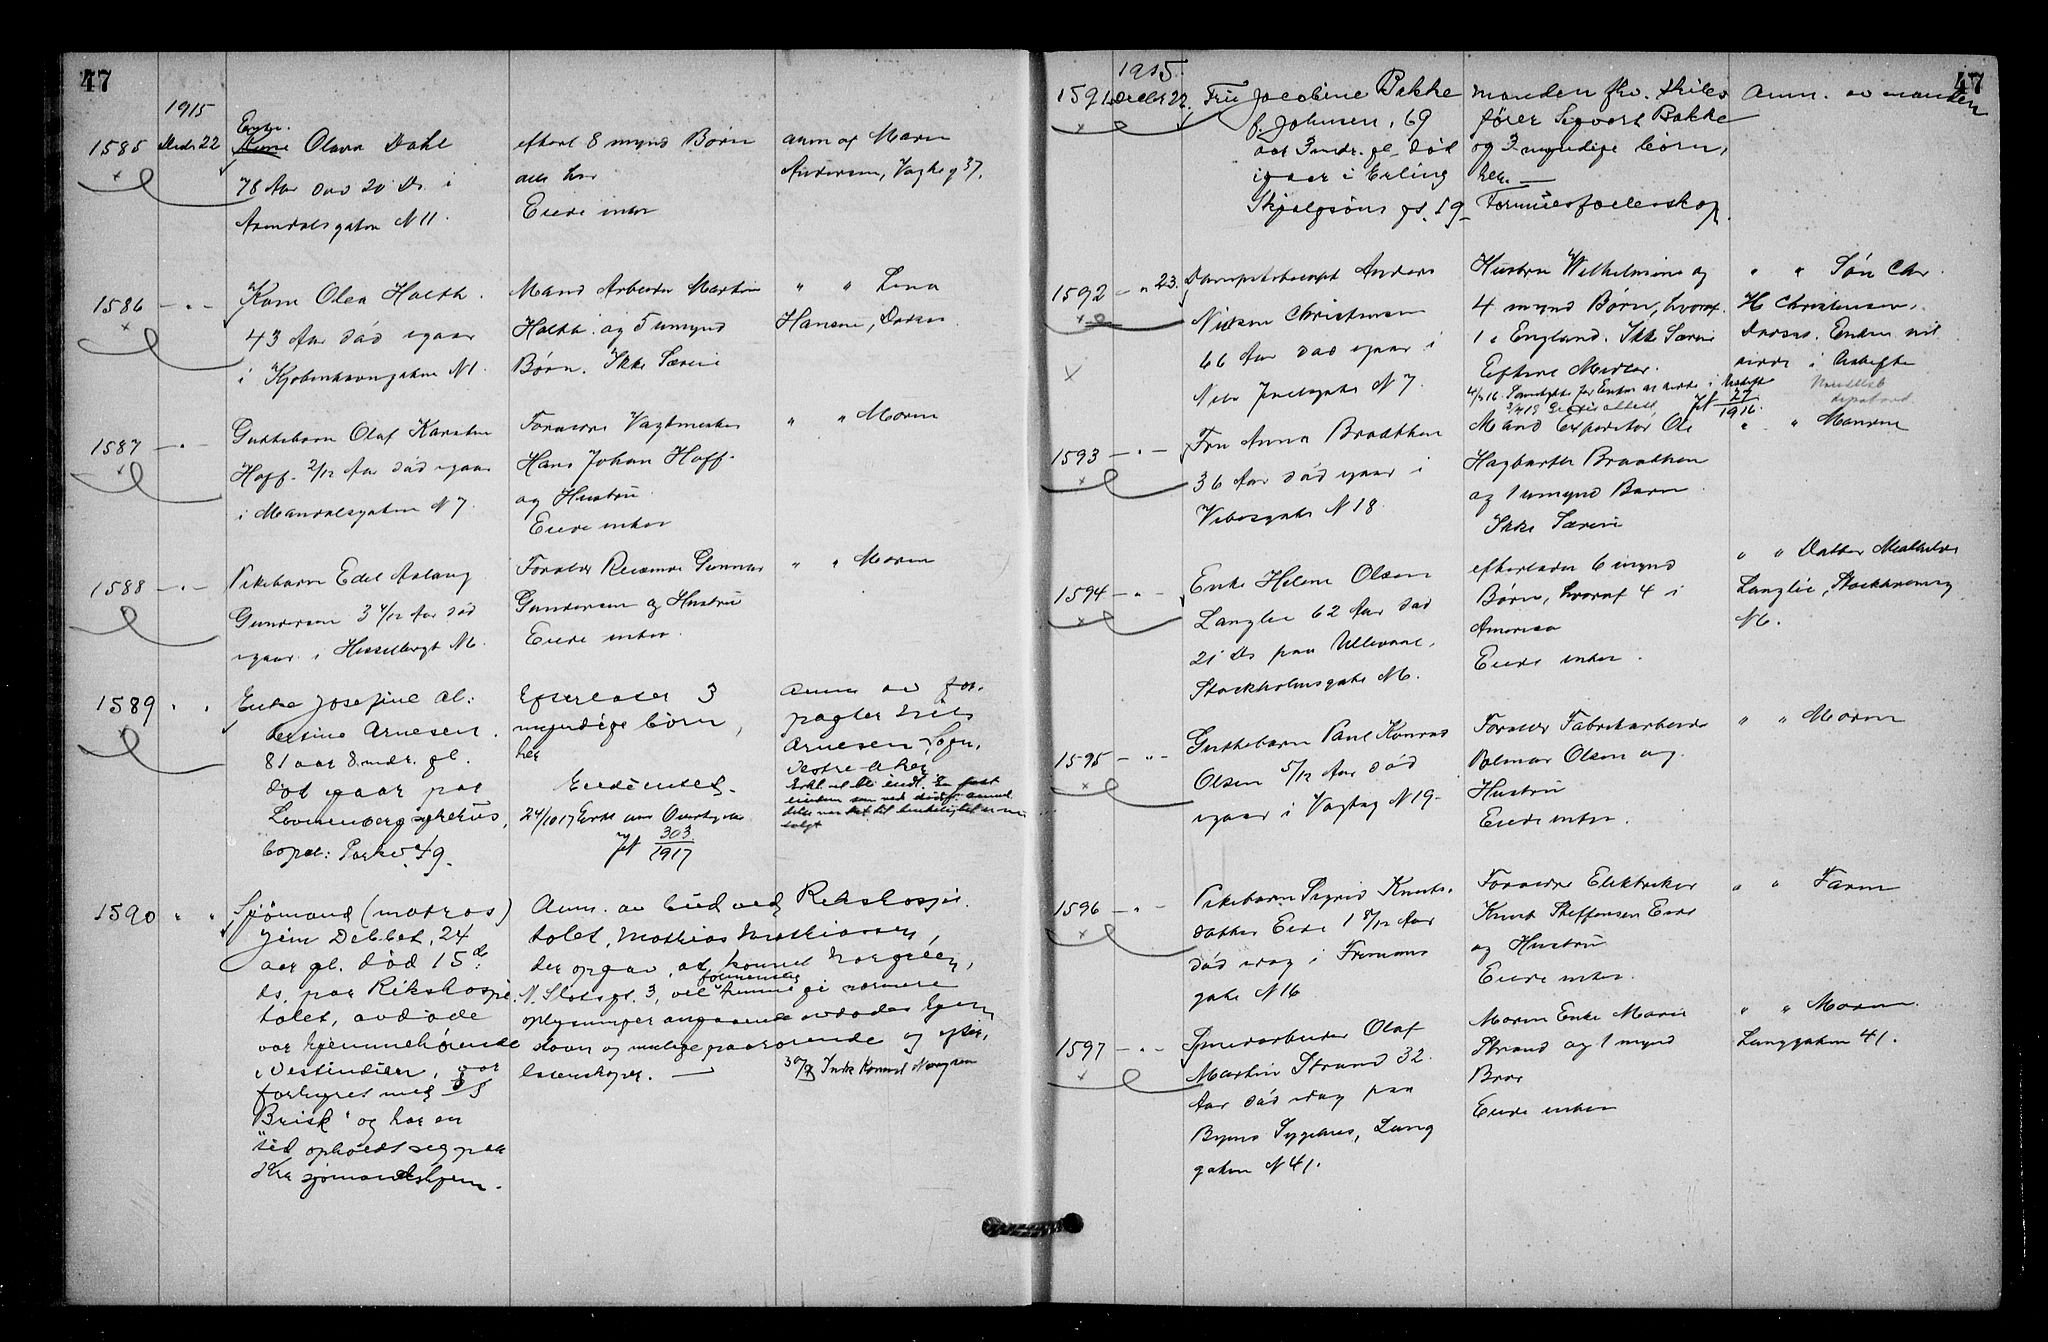 47
1915
1585 Decbr 22
Enke.
Kone Olava Dahl
78 Aar død 20 Ds i
Arendalsgaten N 11.
efterl 8 mynd Børn
alle her
Eiede intet
anm af Maren
Andersen, Vogts g 37.
1586 — " —
Kone Olea Holth.
43 Aar død igaar
i Kjøbenhavngaten N 1.
Mand Arbeider Martin
Holth. og 5 umynd
Børn. Ikke Særeie
" " Lina
Hansen,
1587 — " —
Guttebarn Olaf Karsten
Hoff. 2/12 Aar død igaar
i Mandalsgaten N 7.
Forældre Vagtmester
Hans Johan Hoff.
og Hustru.
Eiede intet
" " Moren
1588 — " —
Pikebarn Edel Aslaug
Gundersen 3 4/12 Aar død
igaar i Hesselbergt N 6.
Forældre Gunnar
Gundersen og Hustru
Eiede intet.
" " Moren
1589 " "
Enke Josefine Al:
bertine Arnesen.
81 aar 8 mdr. gl.
død igaar paa
Lovisenberg sykehus,
bopæl: Parkv. 49.
Efterlater 3
myndige børn,
her
Eiendel.
24/10 17
Jf 303/1917
Anm. av for-
pagter Nils
Arnesen, Sogn,
Vestre Aker
solgt
1590 " "
Sjømand (matros)
Jim Debbet, 24
aar gl. død 15de
ds. paa Rikshospi-
talet, avdøde
var hjemmehørende
i Vestindien, var
forhyret med S/S
"Brisk" og har en
tid opholdt seg paa
Kra sjømandshjem.
Anm. av bud ved Rikshospi-
talet, Mathias Mathiassen,
der opgav, at konsul
N. Slotsgt. 3, vil formentlig kunne gi nærmere
oplysninger angaaende avdødes hjem-
stavn og mulige paarørende og efter-
latenskaper. —
47
1915.
1591 Decbr 22.
Fru Jacobine Bakke
f. Johnsen, 69
aar 3 mdr. gl. død
igaar i Erling
Skjalgsøns gt. 19
manden fhv. skibs
fører Sigvart Bakke
og 3 myndige børn,
her. —
Formuesfællesskap.
Anm. av manden
1592 — " 23.
Anders
Nielsen Christensen
66 Aar død igaar i
Nils Juelsgate N 7.
Hustru Wilhelmine og
4 mynd Børn, hvoraf
1 i England. Ikke Særeie
Efterl Midler.
Jf 27/1916.
" " Søn Chr.
H Christensen,
Enken vil
sidde i Uskifte
1593 — " —
Fru Anna Braathen
36 Aar død igaar i
Vibesgate N 18.
Mand Expeditør Ole
Hagbarth Braathen
og 1 umynd Barn
Ikke Særeie
" " Manden
1594 — " —
Enke Helene Olsen
Langlie 62 Aar død
21 Ds paa Ullevaal,
Stockholmsgate N 6.
efterlader 6 mynd
Børn, hvoraf 4 i
Amerika
Eiede intet.
" " Datter Mathilde
Langlie, Stockholmsg
N 6.
1595 — " —
Guttebarn Paul Konrad
Olsen 5/12 Aar død
igaar i Vogtsg N 19.
Forældre Fabrikarbeider
Olsen og
Hustru
Eiede intet.
" " Moren
1596 — " —
Pikebarn Sigrid Knuts-
datter Eide 1 8/12 Aar
død idag i Fremnes
gate N 16
Forældre Elektriker
Knut Steffensen Eide
og Hustru
Eiede intet.
" " Faren
1597 — " —
Smedarbeider Olaf
Martin Strand 32.
Aar død idag paa
Byens Sygehus, Lang
gaten N 41.
Moren Enke Marie
Strand og 1 mynd
Bror
Eiede intet
" " Moren.
Langgaten 41.